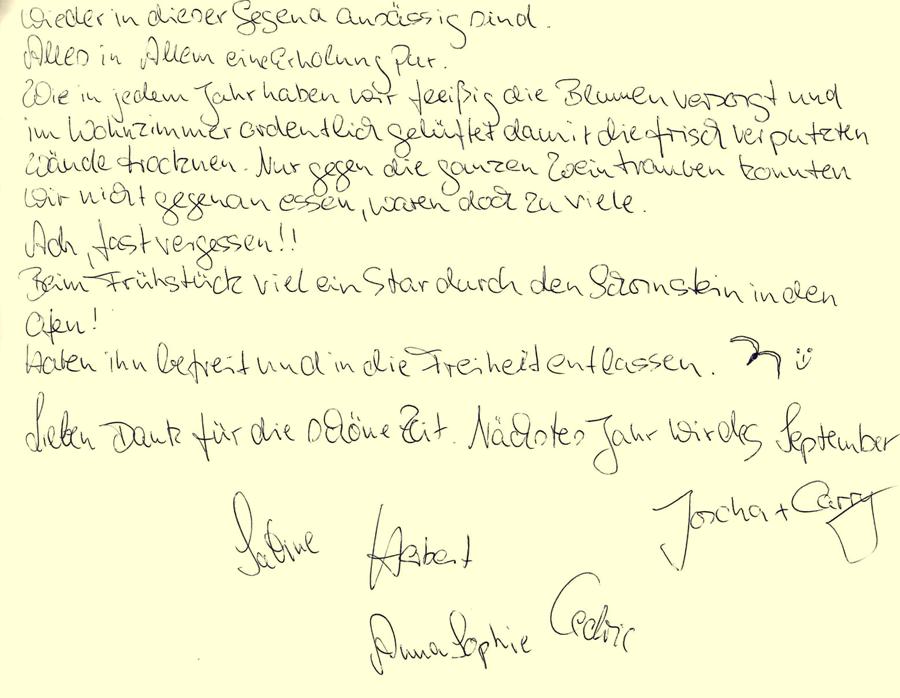 wieder in dieser Gegend ansässig sind.
Alles in Allem eine Erholung pur.
Wie in jedem Jahr haben wir fleißig die Blumen versorgt und
im Wohnzimmer ordentlich gelüftet damit die frisch verputzten
Wände trocknen. Nur gegen die ganzen Weintrauben konnten
wir nicht gegenan essen, waren doch zu viele.
Ach, fast vergessen!!
Beim Frühstück viel ein Star durch den Schornstein in den
Ofen!
Haben ihn befreit und in die Freiheit entlassen.
Lieben Dank für die schöne Zeit. Nächstes Jahr wird es September
Joscha + Carry
Sabine Herbert
Anna Sophie Cedric